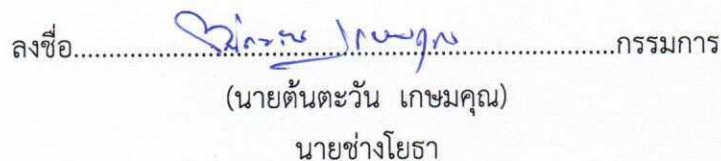 ลงชื่อ....................................................................กรรมการ
(นายต้นตะวัน เกษมคุณ)
นายช่างโยธา